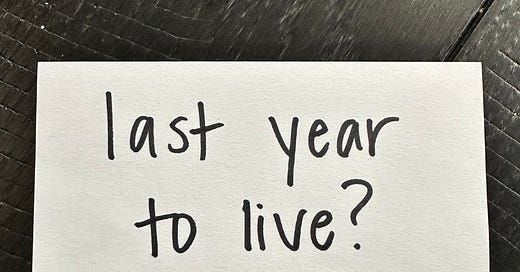 last year
to live?